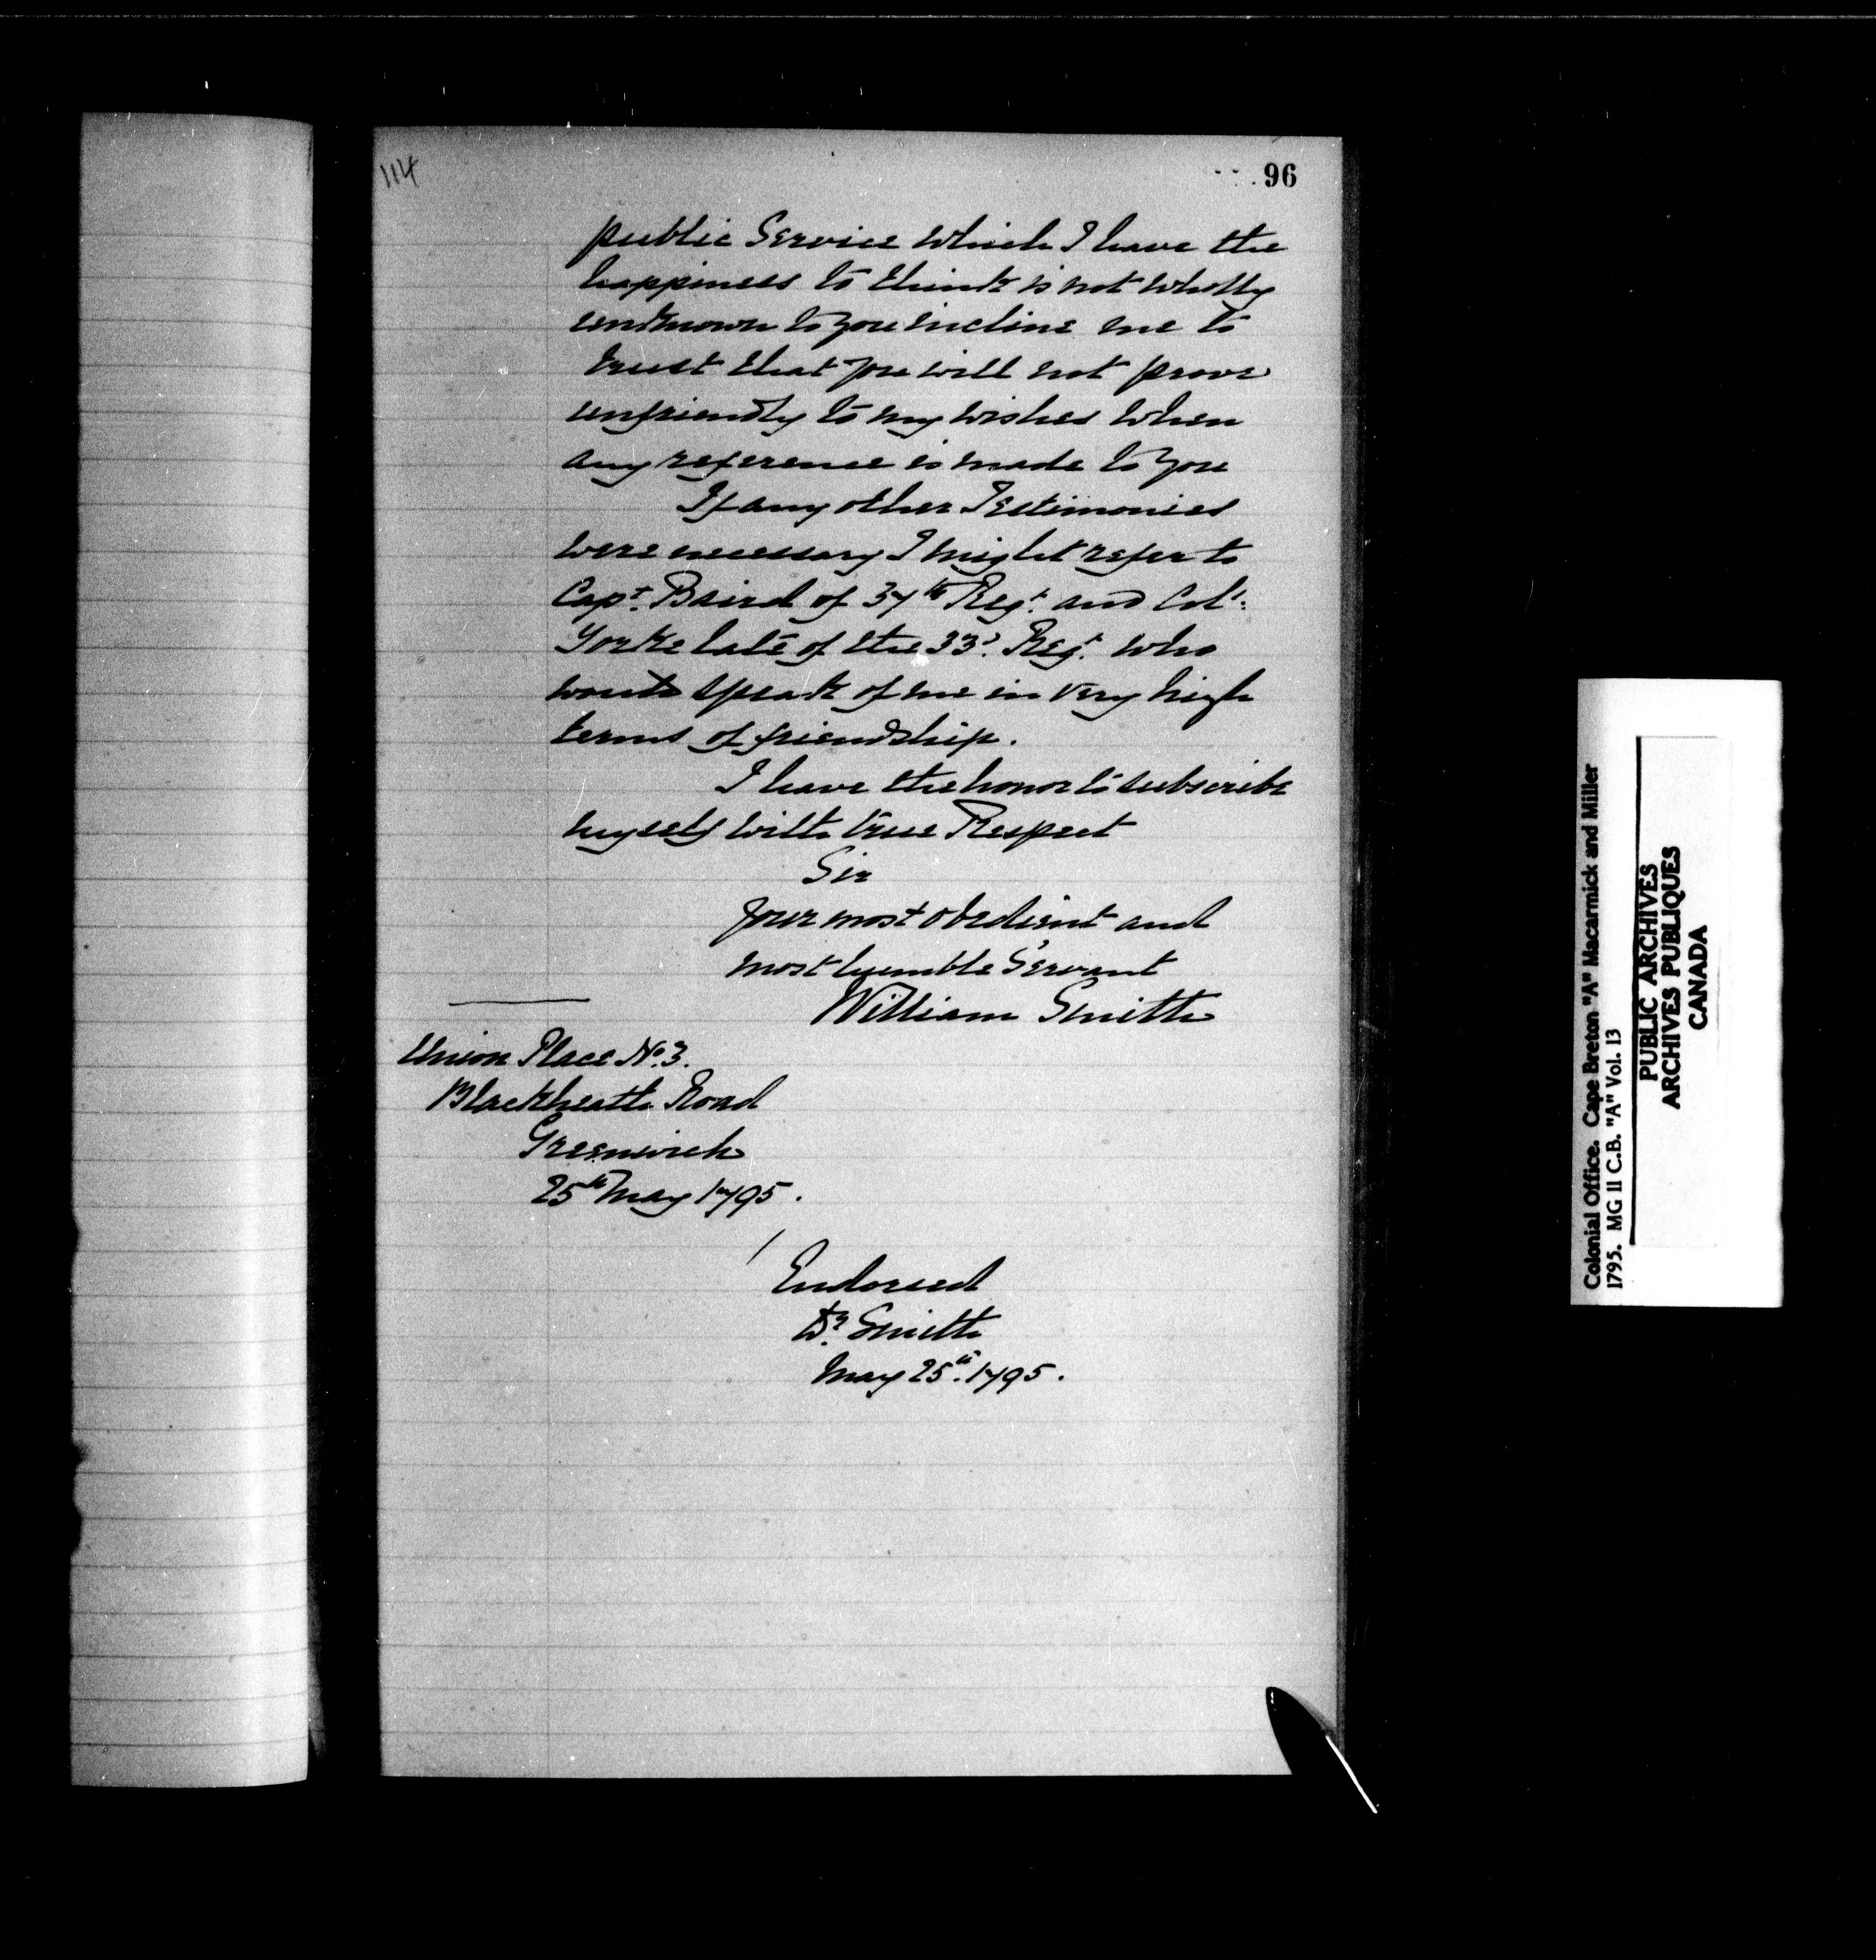 114
96
public Service which I have the
happiness to think is not wholly
unknown to you incline me to
trust that you will not prove
unfriendly to my wishes when
any reference is made to you
If any other Testimonies
were necessary I might refer to
Capt. Baird of 37th Regt. and Col:
Yorke late of the 33d. Regt. who
would speak of me in very high
terms of friendship.
I have the honor to subscribe
myself with true Respect
Sir
your most obedient and
most humble Servant
William Smith
Union Place No. 3.
Blackheath Road
Greenwich
25th May 1795.
Endorsed
Dr. Smith
May 25th. 1795.
Colonial Office. Cape Breton "A" Macarmick and Miller
1795. MG 11 C.B. "A" Vol. 13
PUBLIC ARCHIVES
ARCHIVES PUBLIQUES
CANADA